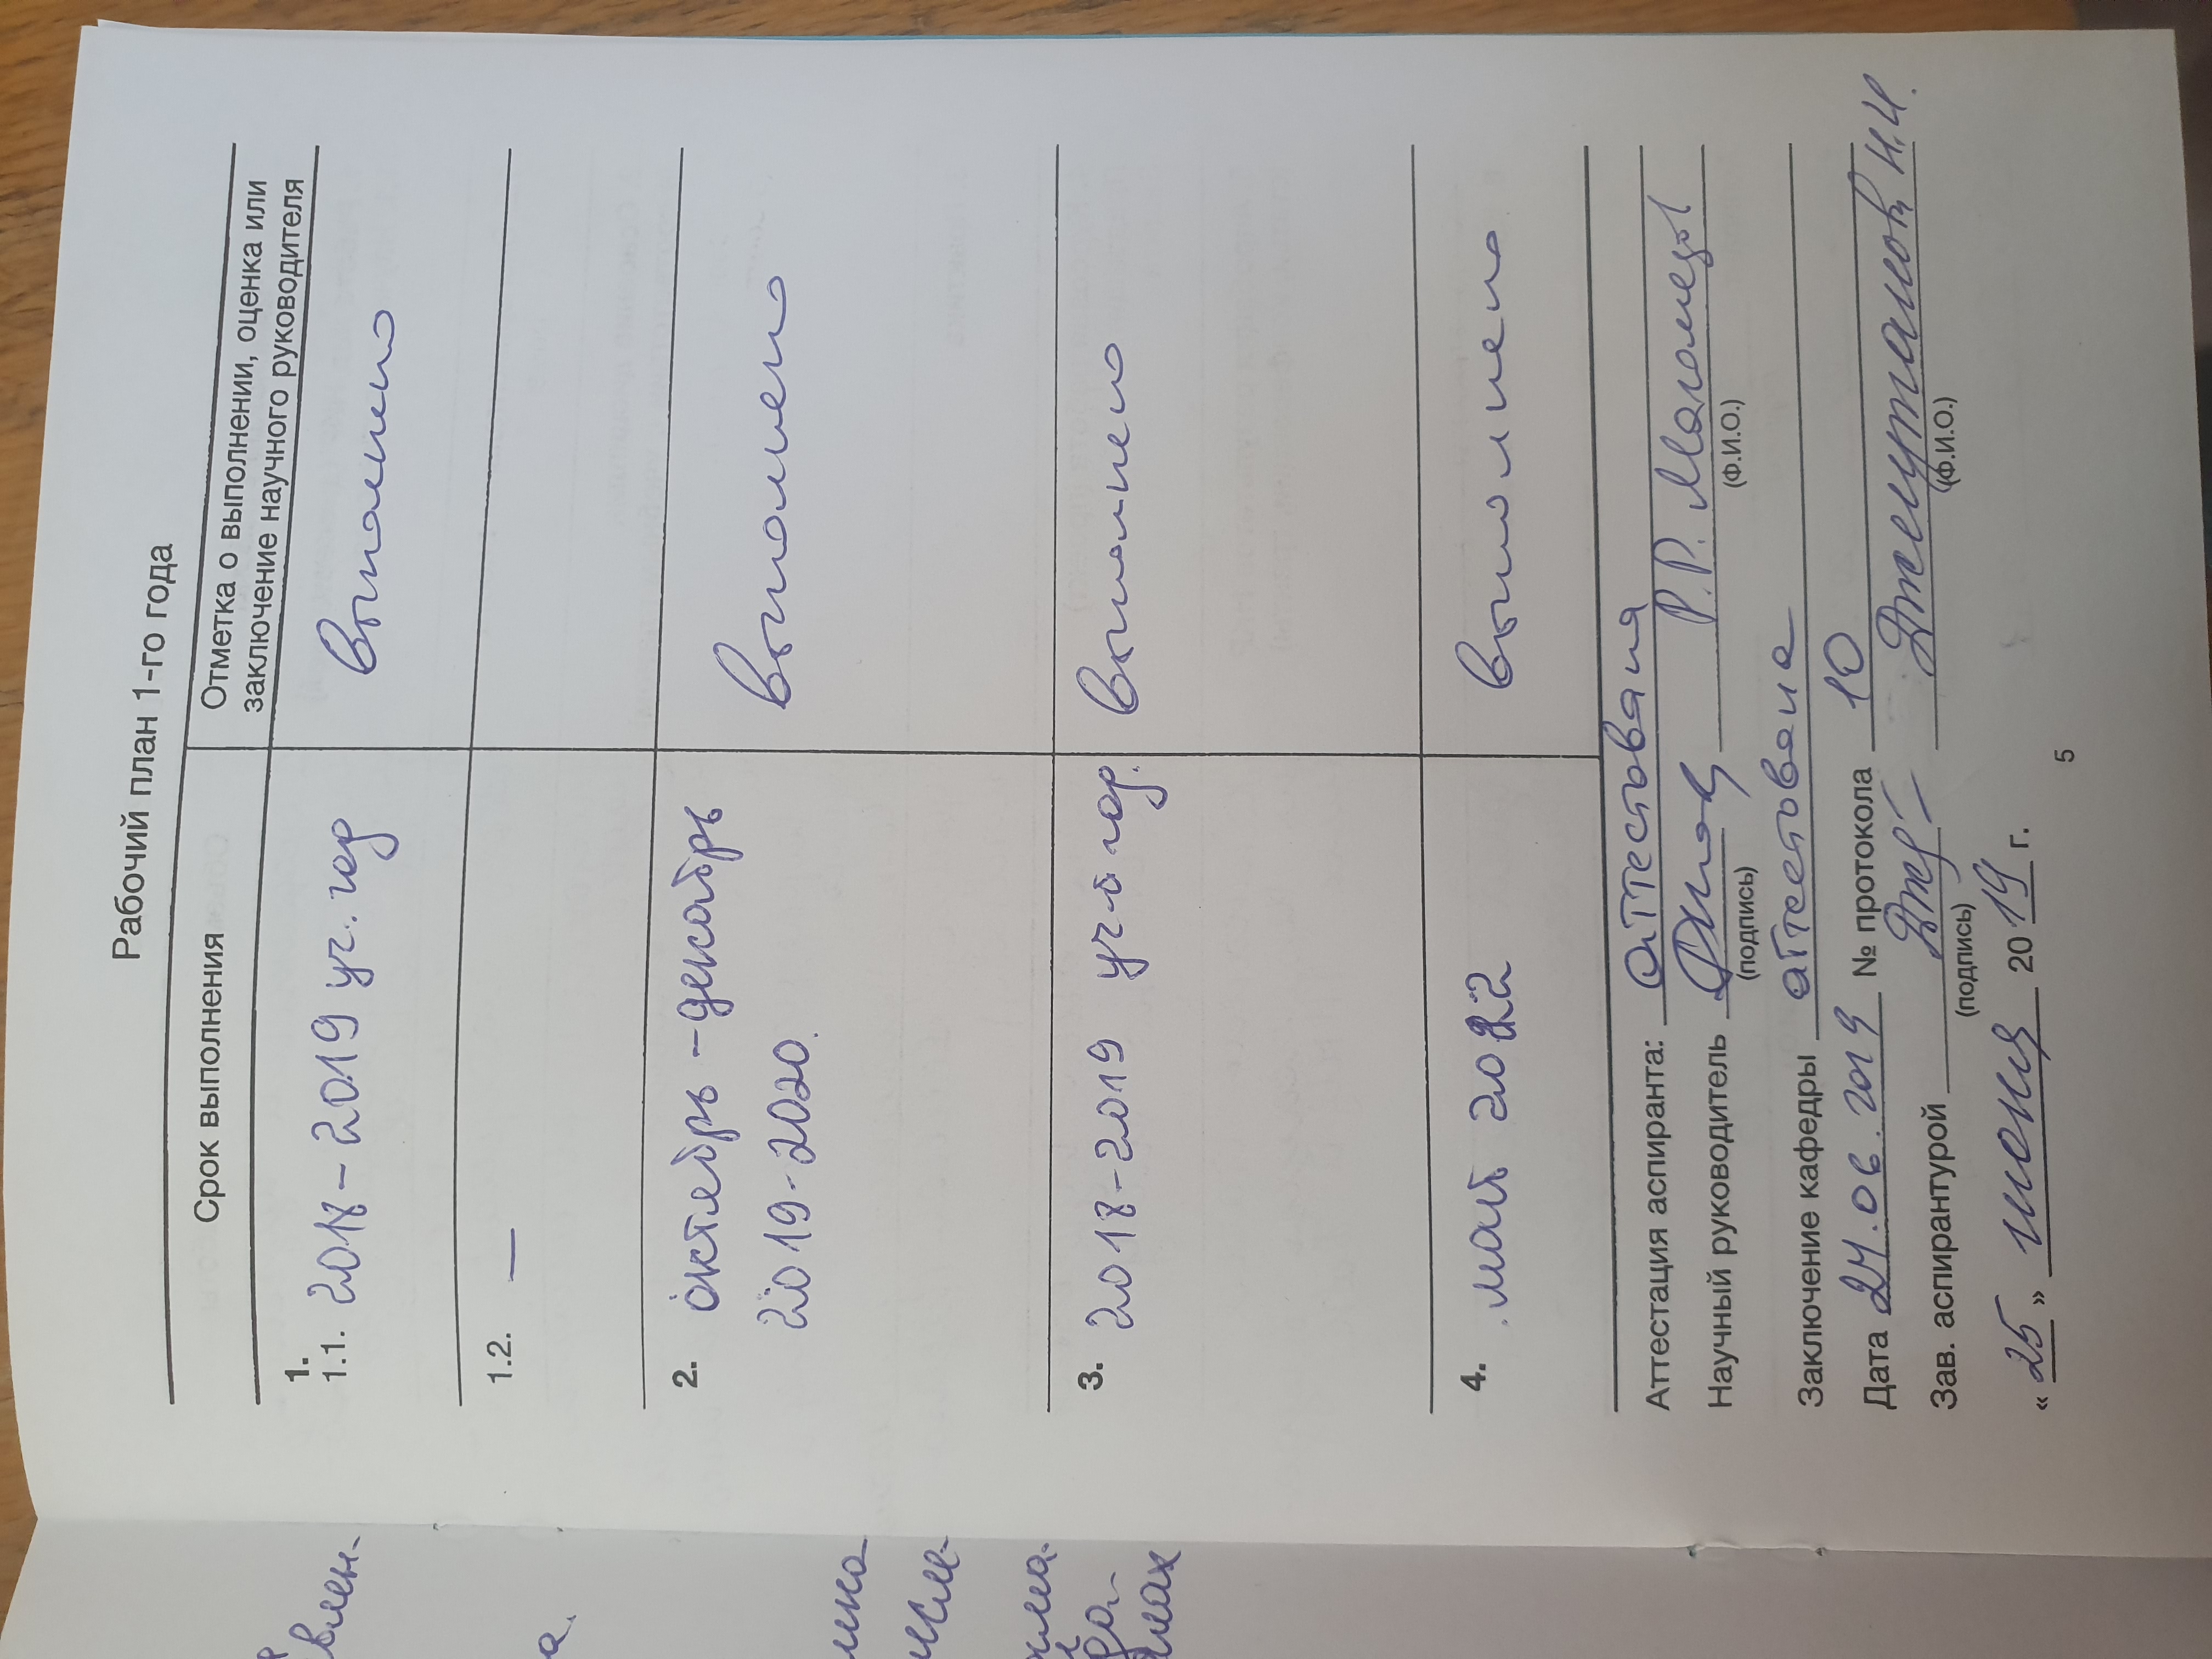 Рабочий план 1-го года
Срок выполнения
Отметка о выполнении, оценка или
заключение научного руководителя
1.
1.1. 2018-2019 уч. год
выполнено
1.2. —
2. октябрь - декабрь
2019-2020.
выполнено
3. 2018-2019 уч-й год.
выполнено
4. май 2022
выполнено
Аттестация аспиранта: аттестована
Научный руководитель Р.Р. Магомедов
(подпись) (Ф.И.О.)
Заключение кафедры аттестована
Дата 24.06.2019 № протокола 10
Зав. аспирантурой Н.И.
(подпись) (Ф.И.О.)
« 25 » июня 2019 г.
5
влен-
а.